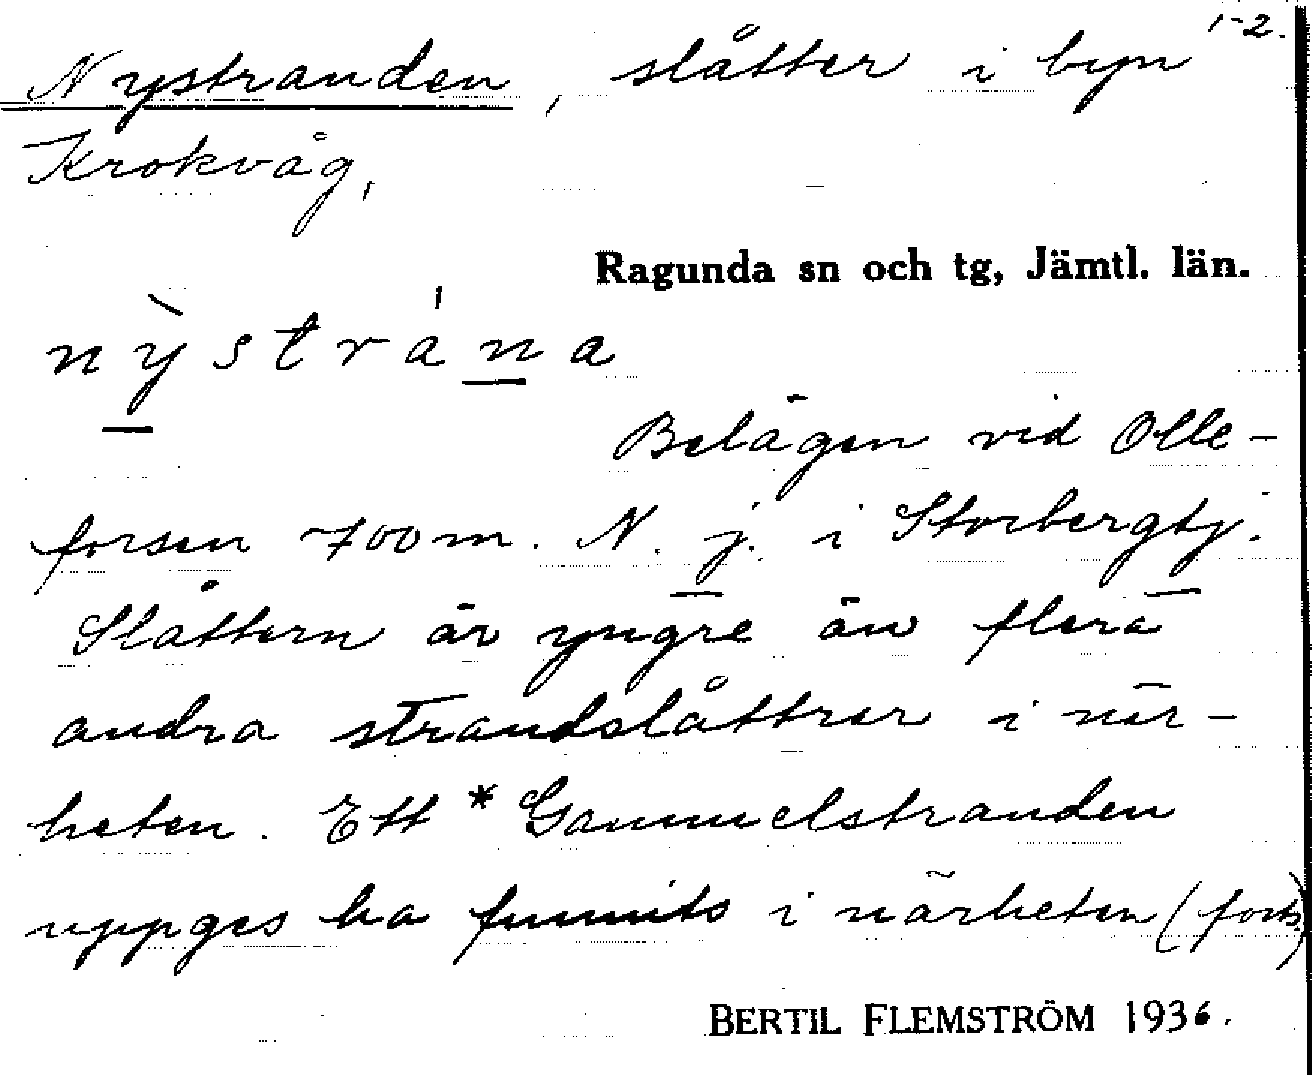 1-2.
Nystranden, slåtter i byn
Krokvåg,
Ragunda sn och tg, Jämtl. län.
nỳstrána
Belägen vid Olle-
forsen 700 m. N. j. i Storbergtj.
Slåttern är yngre än flera
andra strandslåttrer i när-
heten. Ett *Gammelstranden
uppges ha funnits i närheten (forts)
BERTIL FLEMSTRÖM 1936.